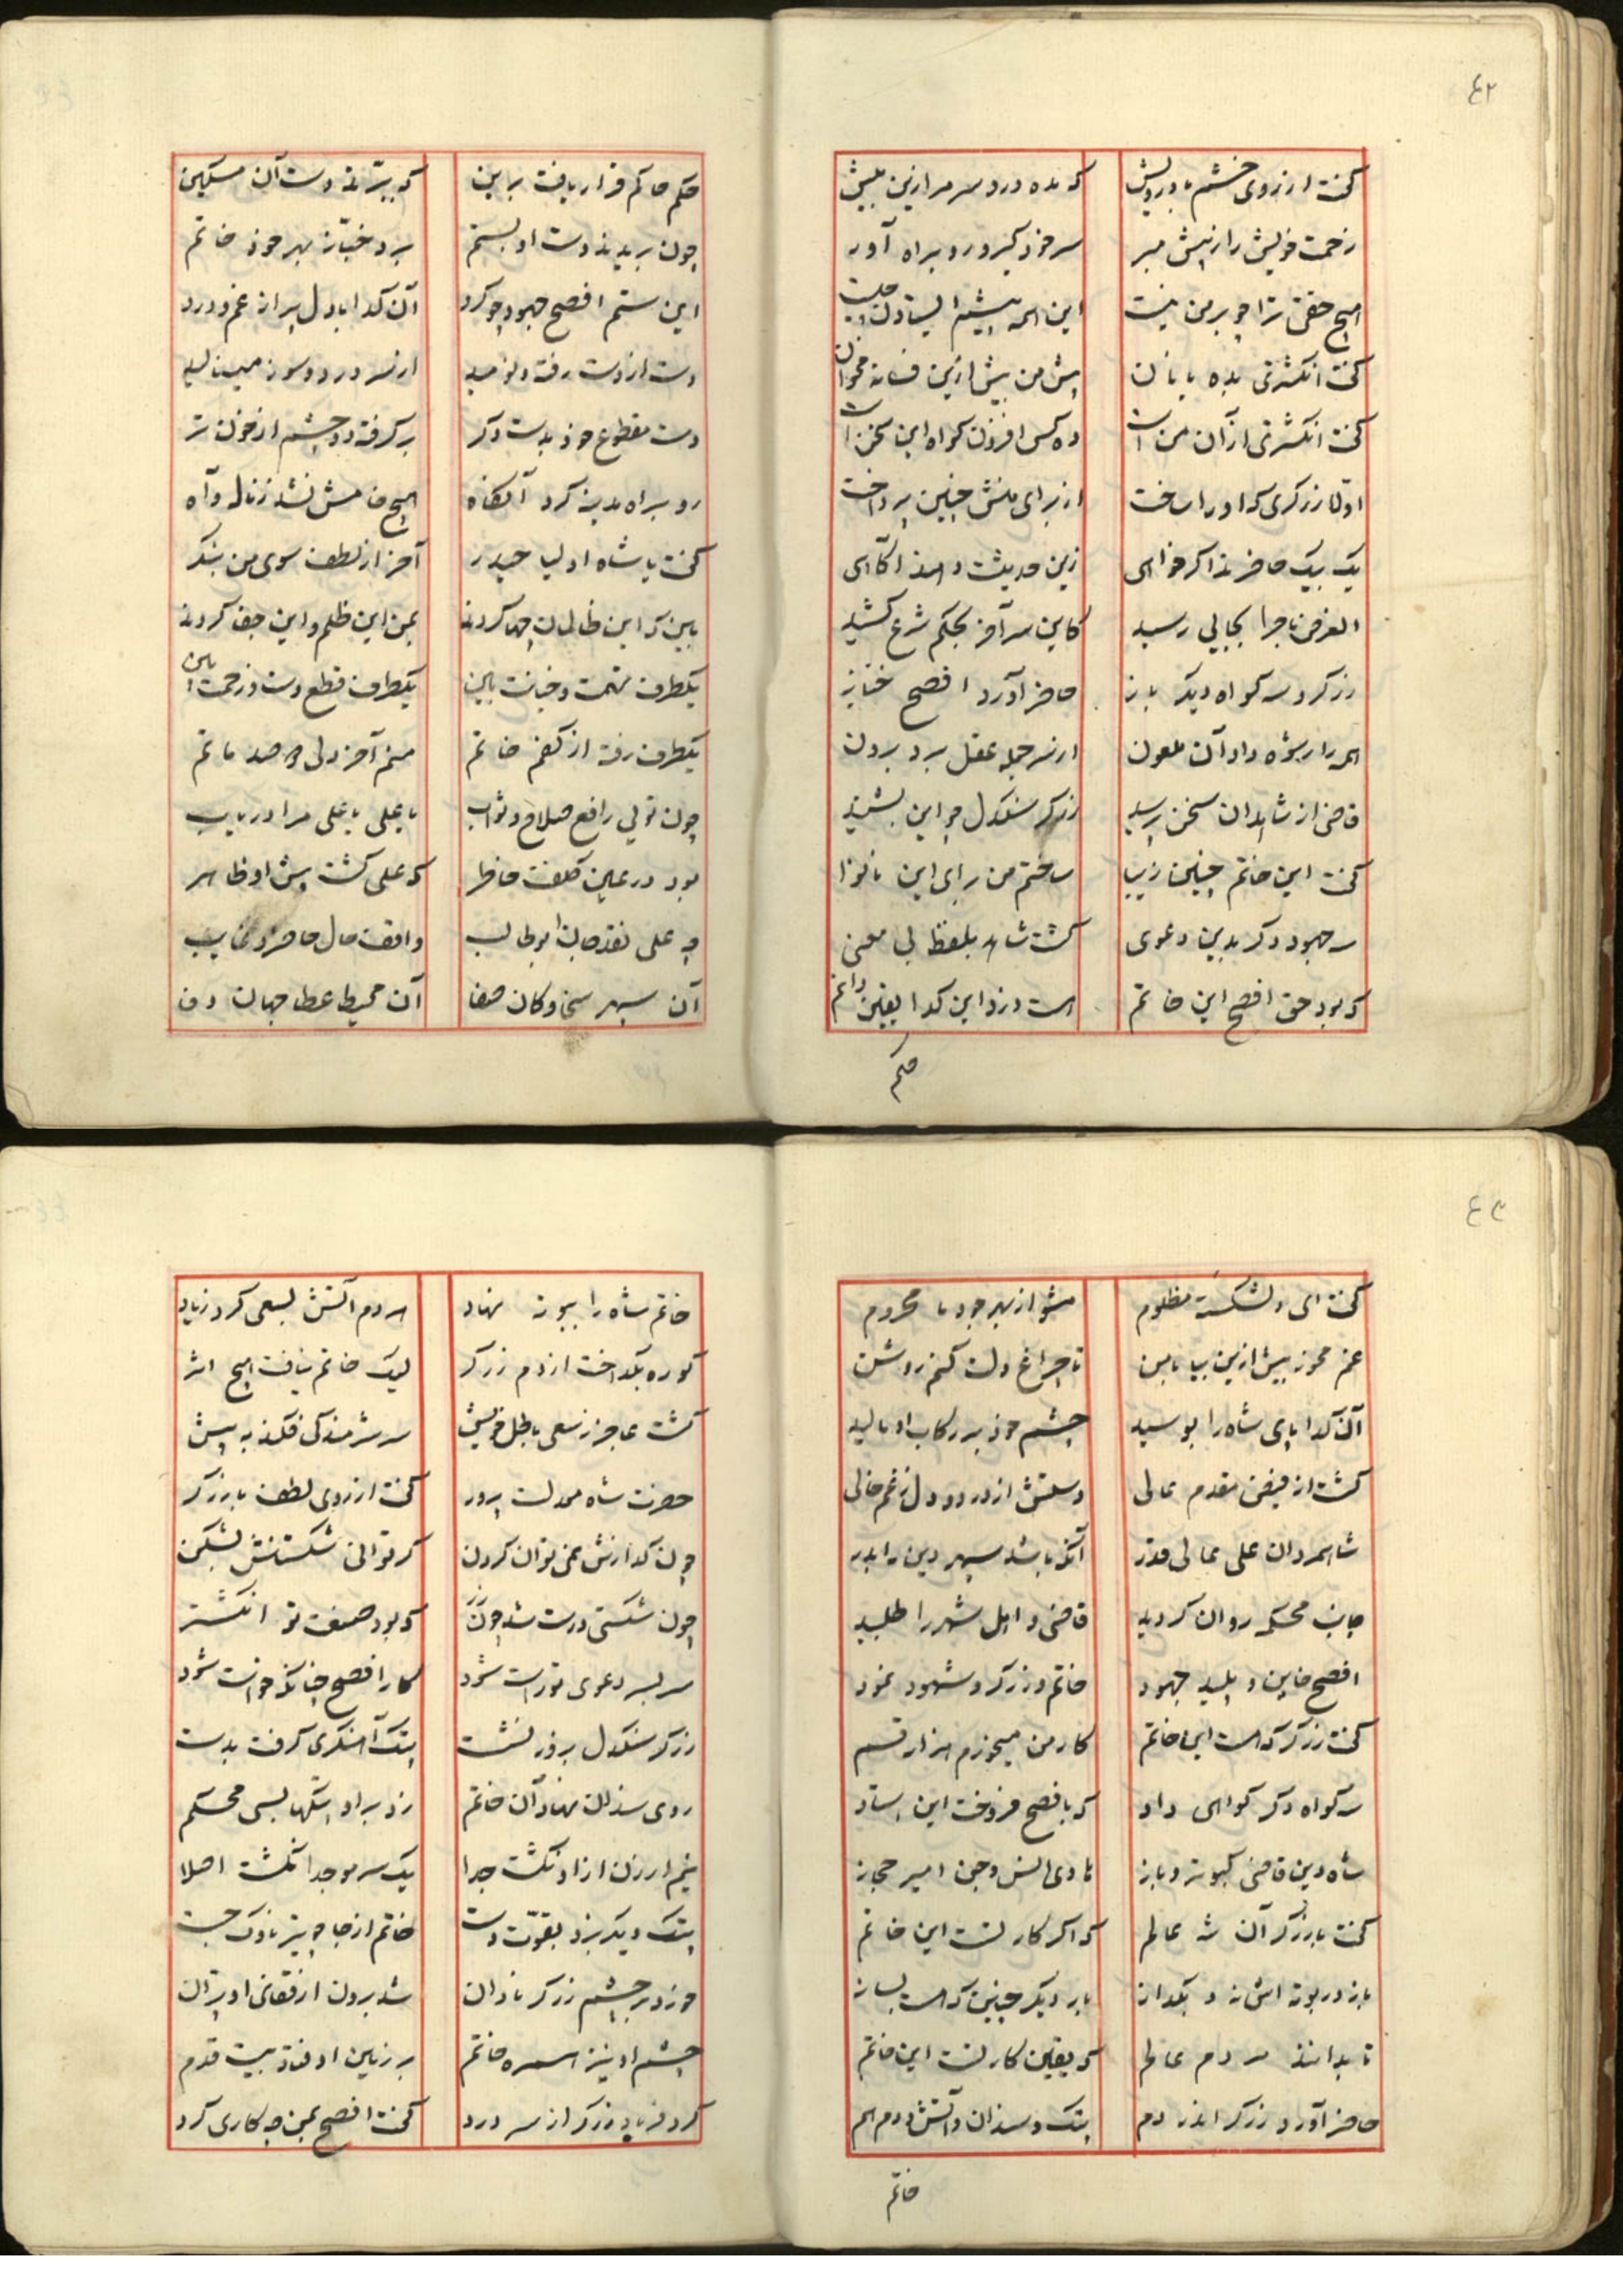 ٤٢
گفت از روی خشم با درویش که مده دردسر مرا زین بیش
زحمت خویش را ز پیش مبر سر خود گیر و رو براه آور
هیچ حقی ترا چو بر من نیست این همه پیشم ایستادن چیست
گفت انگشتری بده با نان پیش من بیش ازین فسانه مخوان
گفت انگشتری از آن من است ده کس افزون گواه این سخن است
اولا زرگری که او را ساخت از برای منش چنین پرداخت
یک بیک حاضرند اگر خواهی زین حدیث دهند آگاهی
الغرض ماجرا بجایی رسید کاین سر آخر بحکم شرع کشید
زرگر و سه گواه دیگر باز حاضر آورد افصح خباز
همه را رشوه داد آن ملعون از سر جمله عقل برد برون
قاضی از شاهدان سخن پرسید زرگر سنگدل چو این بشنید
گفت این خاتم چنین زیبا ساختم من برای این نانوا
سه جهود دگر بدین دعوی گشت شاهد بلفظ بی معنی
که بود حق افصح این خاتم است دزد این گدا یقین دانم
حکم
حکم حاکم قرار یافت براین که ببرند دست آن مسکین
چون بریدند دست او بستم برد خباز بهر خود خاتم
این ستم افصح جهود چو کرد آن گدا با دل پر از غم و درد
دست از دست رفته و نومید از سر درد و سوز مینالید
دست مقطوع خود بدست دگر بر گرفته دو چشم از خون تر
رو براه مدینه کرد آنگاه هیچ خامش نشد ز ناله و آه
گفت یا شاه اولیا حیدر آخر از لطف سوی من بنگر
ببین که این ظالمان چها کردند بمن این ظلم و این جفا کردند
یکطرف تهمت و خیانت باین یکطرف قطع دست و زحمت این
یکطرف رفته از کفم خاتم منم آخر دلی و صد ماتم
چون تویی رافع صلاح و ثواب یا علی یا علی مرا دریاب
بود در عین کلفت خاطر که علی گشت پیش او ظاهر
چه علی نقد جان ابوطالب واقف حال حاضر و غایب
آن سپهر سخا و کان صفا آن محیط عطا جهان وفا
٤٣
گفت ای دلشکسته مظلوم مشو از بهر جود ما محروم
غم مخور بیش ازین بیا با من تا چراغ دلت کنم روشن
آن گدا پای شاه را بوسید چشم خود بر رکاب او مالید
گشت از فیض مقدم عالی دستش از درد و دل ز غم خالی
شاه مردان علی عالی قدر آنکه باشد سپهر دین را بدر
جانب محکمه روان گردید قاضی و اهل شهر را طلبید
افصح خاین و پلید جهود خاتم و زرگر و شهود نمود
گفت زرگر که هست این خاتم کار من میخورم هزار قسم
سه گواه دگر گواهی داد که بافصح فروخت این استاد
شاه دین قاضی کبوتر و باز هادی انس و جن امیر حجاز
گفت با زرگر آن شه عالم که اگر کار تست این خاتم
باز در بوته اش نه و بگداز بار دیگر چنین که هست بساز
تا بدانند مردم عالم که یقین کار تست این خاتم
حاضر آورد زرگر اندر دم پتک و سندان و آتش و دم هم
خاتم
خاتم شاه را ببوته نهاد هر دم آتش بسعی کرد زیاد
کوره بگداخت از دم زرگر لیک خاتم نیافت هیچ اثر
گشت عاجز ز سعی باطل خویش سر شرمندگی فکند به پیش
حضرت شاه معدلت پرور گفت از روی لطف با زرگر
چون گدازش نمی توان کردن گر توانی شکستنش بشکن
چون شکستی درست شد چون زر که بود صنعت تو انگشتر
سر بسر دعوی تو راست شود کار افصح چنانکه خواست شود
زرگر سنگدل بزور نشست پتک آهنگری گرفت بدست
روی سندان نهاد آن خاتم زد بر او پتکها بسی محکم
نیم ارزن ازاو نگشت جدا یک سر مو جدا نگشت اصلا
پتک دیگر بزد بقوت دست خاتم از جا چو تیر ناوک جست
خورد بر چشم زرگر نادان شد برون از قفای او پران
چشم او نیز همره خاتم بر زمین اوفتاد بیست قدم
کرد فریاد زرگر از سر درد گفت افصح بمن چه کاری کرد